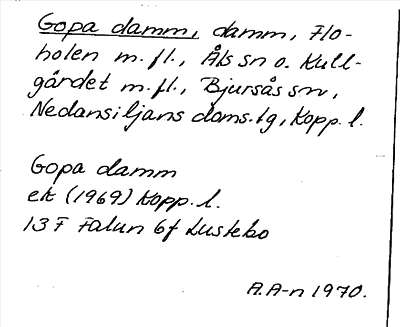 Gopa damm, damm, Flo-
holen m.fl., Åls sn o. Kull-
gårdet m.fl., Bjursås sn,
Nedansiljans doms.tg, Kopp. l.
Gopa damm
ek (1969) Kopp. l.
13 F Falun 6f Lustebo
A.A-n 1970.